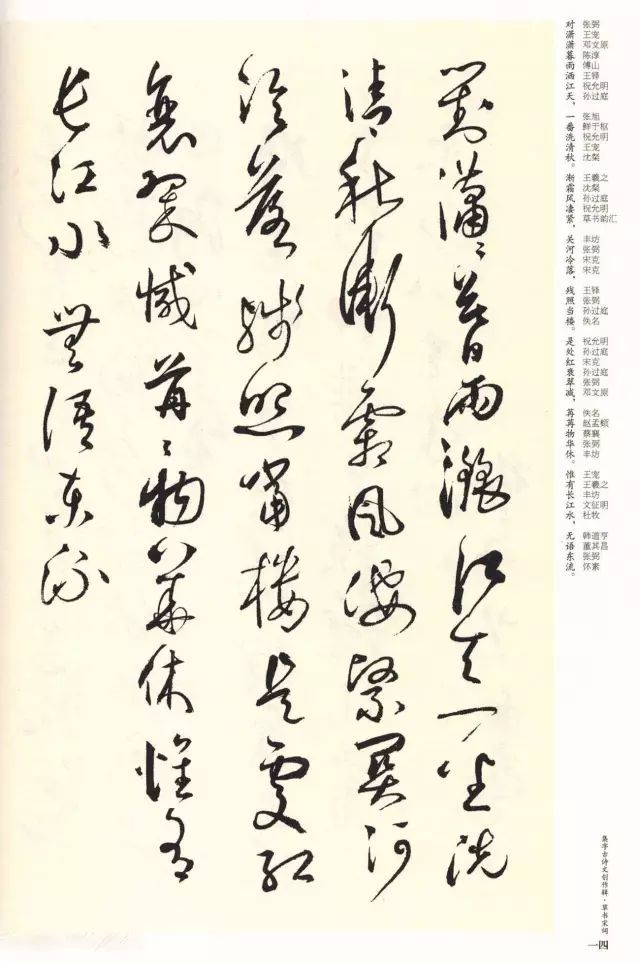 张弼 王宠 邓文原 陈淳 傅山 王铎 祝允明 孙过庭 张旭 鲜于枢 祝允明 王宠 沈粲 王羲之 沈粲 孙过庭 祝允明 草书韵汇 丰坊 张弼 宋克 宋克 王铎 张弼 孙过庭 佚名 祝允明 孙过庭 宋克 孙过庭 张弼 邓文原 佚名 赵孟頫 蔡襄 张弼 丰坊 王宠 王羲之 丰坊 文征明 杜牧 韩道亨 董其昌 张弼 怀素
对潇潇暮雨洒江天，一番洗清秋。渐霜风凄紧，关河冷落，残照当楼。是处红衰翠减，苒苒物华休。惟有长江水，无语东流。
集字古诗文创作辑·草书宋词
一四
對瀟〻暮雨灑江天一番洗
清秋漸霜風凄緊關河
冷落殘照當樓是處紅
衰翠減苒〻物華休惟有
長江水無語東流